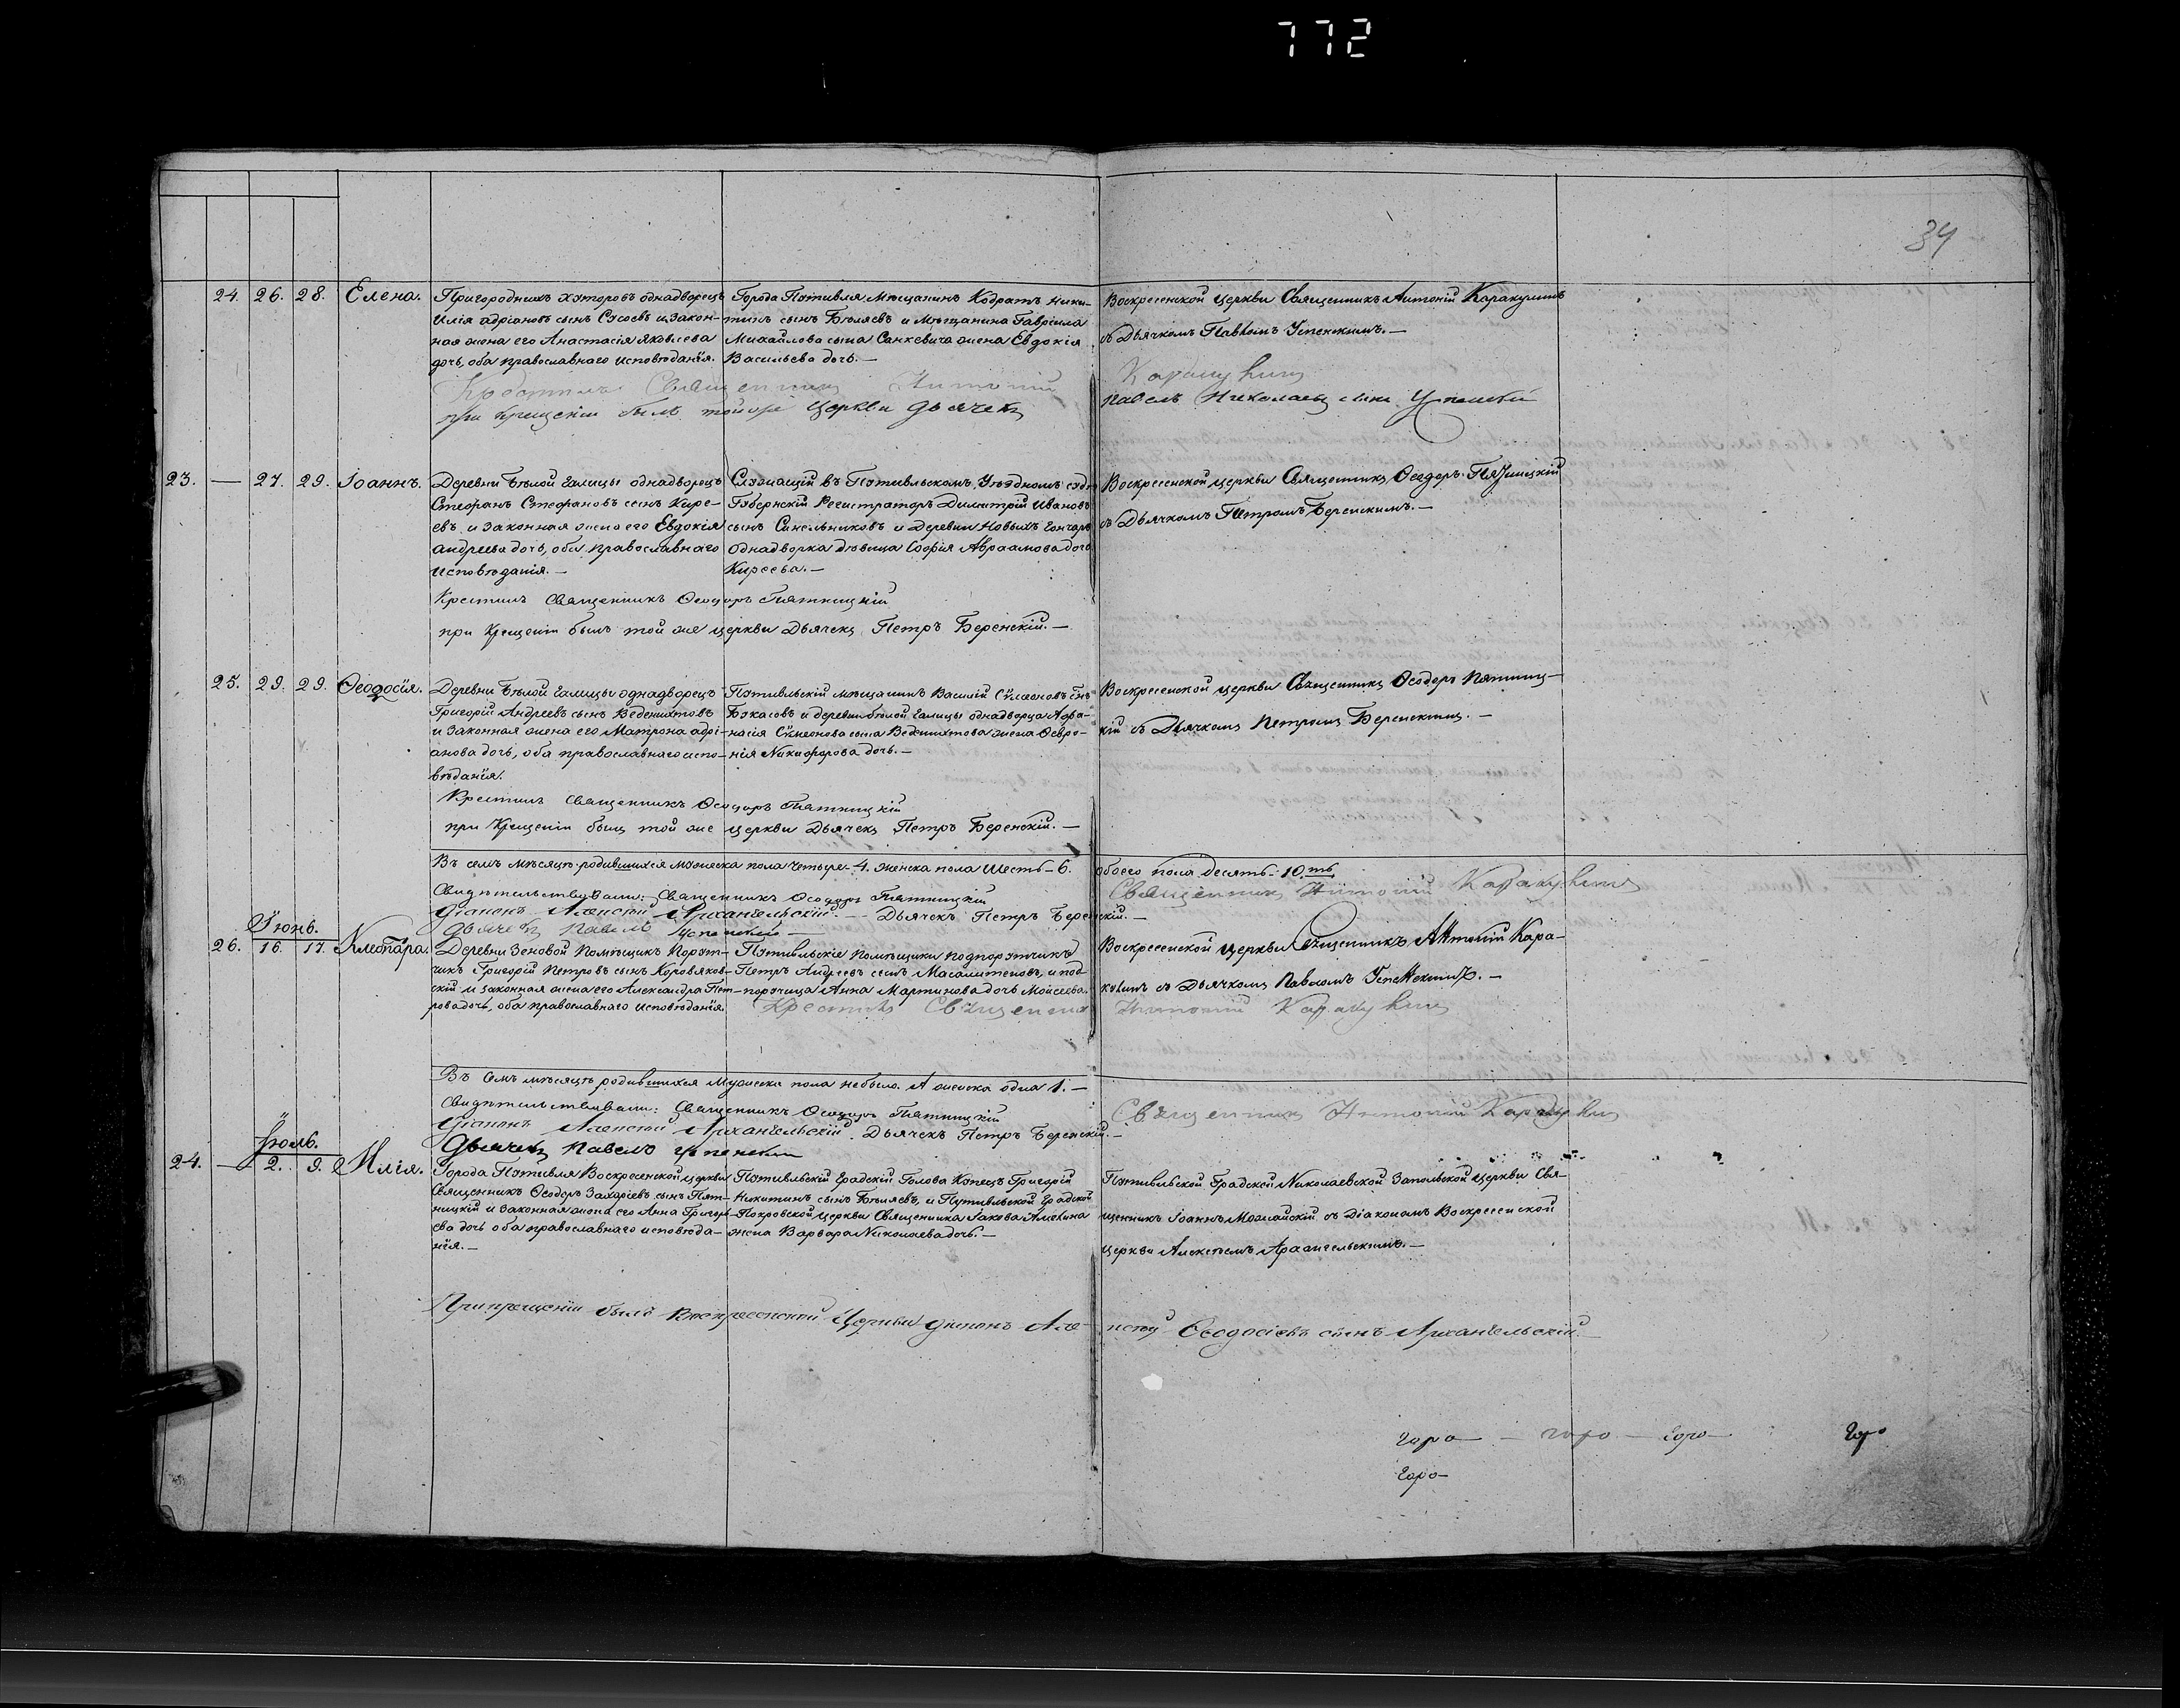 772
34
24. 26. 28. Елена.
Пригородныхъ хуторовъ однадворецъ
Илія Адріановъ сынъ Сусоевъ и закон-
ная жена его Анастасія Яковлева
дочь, оба православнаго исповѣданія.
Города Путивля мѣщанинъ Кодратъ Ники-
тинъ сынъ Бѣляевъ и мѣщанина Гавріила
Михайлова сына Санкевича жена Евдокія
Васильева дочь.—
Воскресенской церкви Священникъ Антоній Каракулинъ
съ Дьячкомъ Павломъ Успенскимъ.—
Крестилъ Священникъ Антоній Каракулинъ
при крещеніи былъ тойже церкви дьячекъ Павелъ Николаевъ сынъ Успенскій
23. — 27. 29. Іоаннъ.
Деревни Бѣлой Галицы однадворецъ
Стефанъ Стефановъ сынъ Кире-
евъ, и законная жена его Евдокія
Андреева дочь, оба православнаго
исповѣданія.—
Служащій въ Путивльскомъ Уѣздномъ судѣ
Губернскій Регистраторъ Димитрій Ивановъ
сынъ Синельниковъ и Деревни Новыхъ Гончаръ
однадворка дѣвица Софія Авраамова дочь
Киреева.—
Воскресенской церкви Священникъ Ѳеодоръ Пятницкій
съ Дьячкомъ Петромъ Беренскимъ.—
Крестилъ Священникъ Ѳеодоръ Пятницкій
при Крещеніи былъ той же церкви Дьячекъ Петръ Беренскій.—
25. 29. 29. Ѳеодосія.
Деревни Бѣлой Галицы однадворецъ
Григорій Андреевъ сынъ Веденихтовъ
и законная жена его Матрона Адрі-
анова дочь, оба православнаго испо-
вѣданія.
Путивльскій мѣщанинъ Василій Сѵмеоновъ снъ
Букасовъ и деревни бѣлой Галицы однадворца Афа-
насія Сѵмеонова сына Веденихтова жена Февро-
нія Никифорова дочь.—
Воскресенской церкви Священникъ Ѳеодоръ Пятниц-
кій съ Дьячкомъ Петромъ Беренскимъ.—
Крестилъ Священникъ Ѳеодоръ Пятницкій
при Крещеніи былъ той же церкви Дьячекъ Петръ Беренскій.—
Въ семъ мѣсяцѣ родившихся мужеска пола четыре-4. женска пола шесть-6. обоего пола десять-10.ть
Свидѣтельствовали: Священникъ Ѳеодоръ Пятницкій
Священникъ Антоній Каракулинъ
Діаконъ Алексѣй Архангельскій.— Дьячекъ Петръ Беренскій.—
Дьячекъ Павелъ Успенскій—
Іюнь.
26. 16. 17. Клеопатра.
Деревни Зеновой Помѣщикъ Поруч-
чикъ Григорій Петровъ сынъ Коровяков-
скій и законная жена его Александра Пет-
рова дочь, оба православнаго исповѣданія.
Путивльскіе помѣщики подпоручикъ
Петръ Андреевъ сынъ и под-
поручица Анна Мартинова дочь Моисеева.
Воскресенской церкви Священникъ Антоній Кара-
кулинъ съ Дьячкомъ Павломъ Успенскимъ.—
Крестилъ Священникъ Антоній Каракулинъ
Въ семъ мѣсяцѣ родившихся мужеска пола небыло. А женска одна 1.—
Свидѣтельствовали: Священникъ Ѳеодоръ Пятницкій
Священникъ Антоній Каракулинъ
Діаконъ Алексѣй Архангельскій. Дьячекъ Петръ Беренскій.—
Дьячекъ Павелъ Успенскій
Іюль.
24. — 2. 9. Илія.
Города Путивля Воскресенской церкви
Священникъ Ѳеодоръ Захаріевъ сынъ Пят-
ницкій и законная жена его Анна Григорь-
ева дочь оба православнаго исповѣда-
нія.—
Путивльскій Градскій Голова Купецъ Григорій
Никитинъ сынъ Бѣляевъ, и Путивльской Градской
Покровской церкви Священника Іакова Алехина
жена Варвара Николаева дочь.—
Путивльской Градской Николаевской Запольской церкви Свя-
щенникъ Іоаннъ Можайскій съ Діакономъ Воскресенской
церкви Алексѣемъ Архангельскимъ.—
При крещеніи былъ Воскресенской Церкви діаконъ Але-
ксѣй Ѳеодосіевъ сынъ Архангельскій—
Горо — горо — Горо — Горо
Горо—